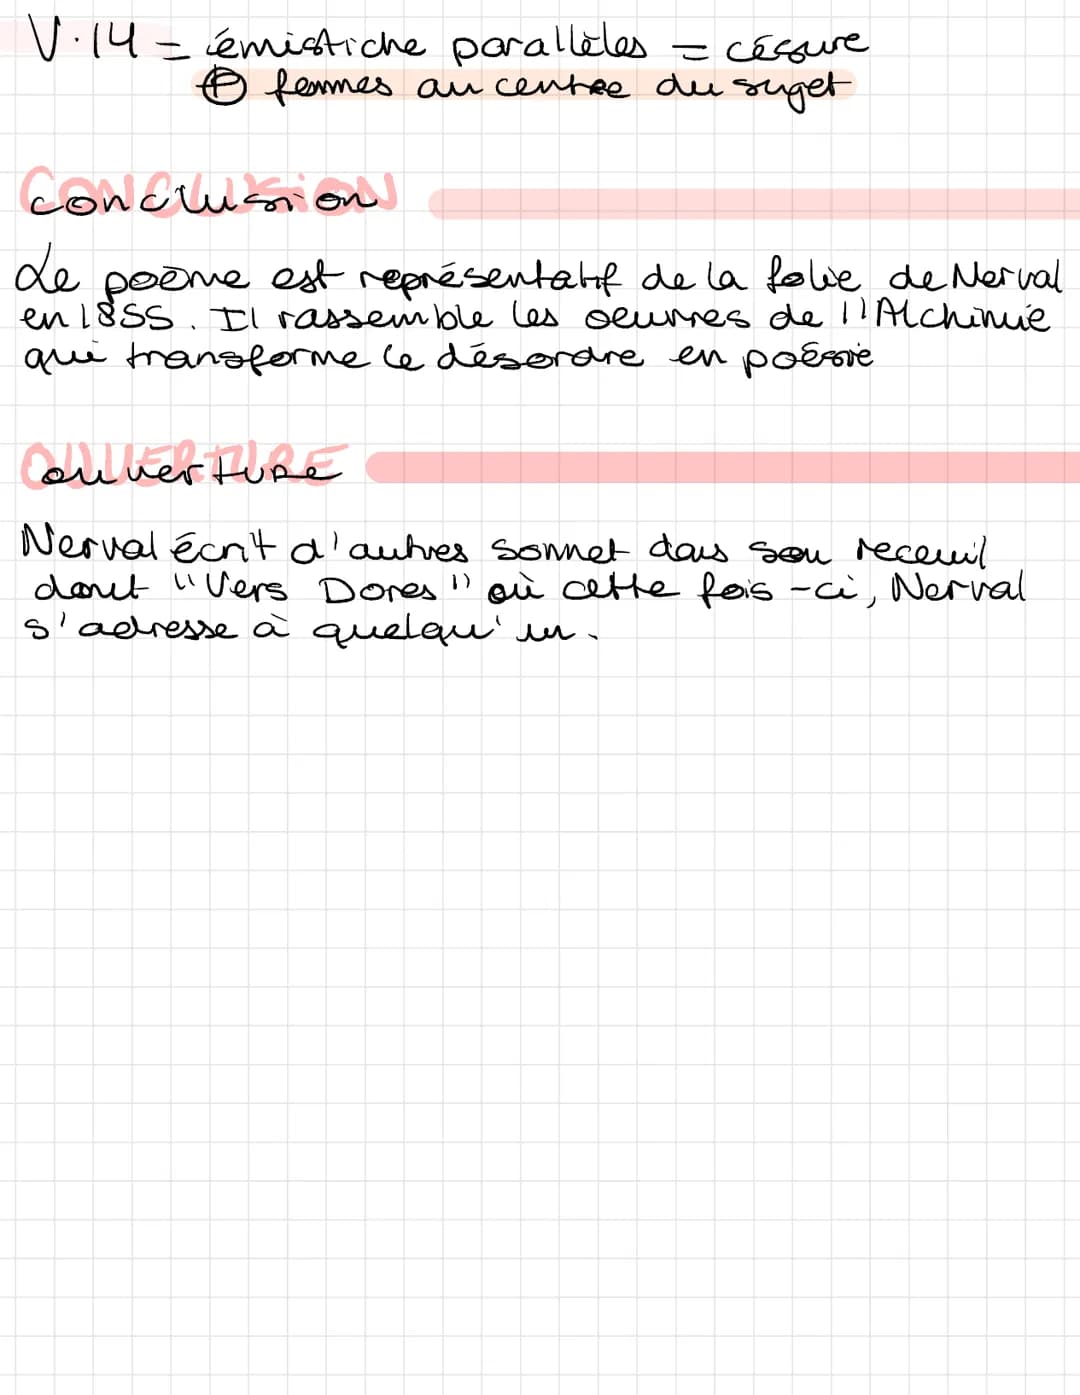 V.14 = émistiche parallèles = césure
⊕ femmes au centre du suget
CONCLUSION
conclusion
Le poème est représentatif de la folie de Nerval
en 1855. Il rassemble les oeuvres de l'Alchimie
qui transforme le désordre en poésie
OUVERTURE
ouverture
Nerval écrit d'autres sonnet dans son receuil
dont "Vers Dores" où cette fois-ci, Nerval
s'adresse à quelqu'un.